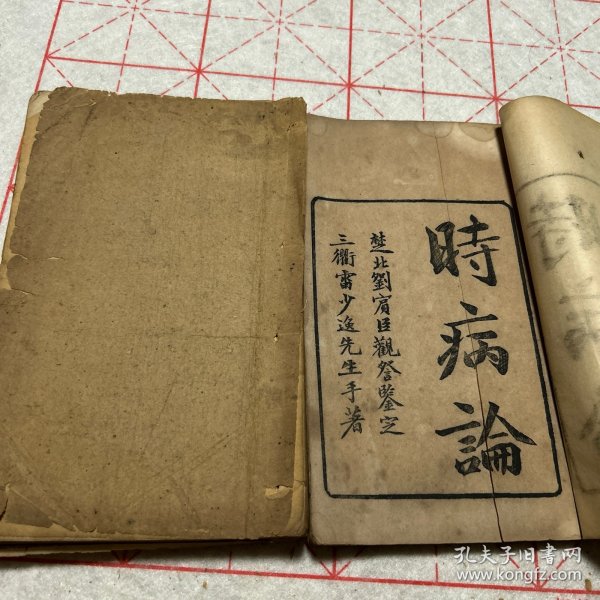 時病論
楚北劉賓臣觀詧鑒定
三衢雷少逸先生手著
孔夫子旧书网
www.kongfz.com